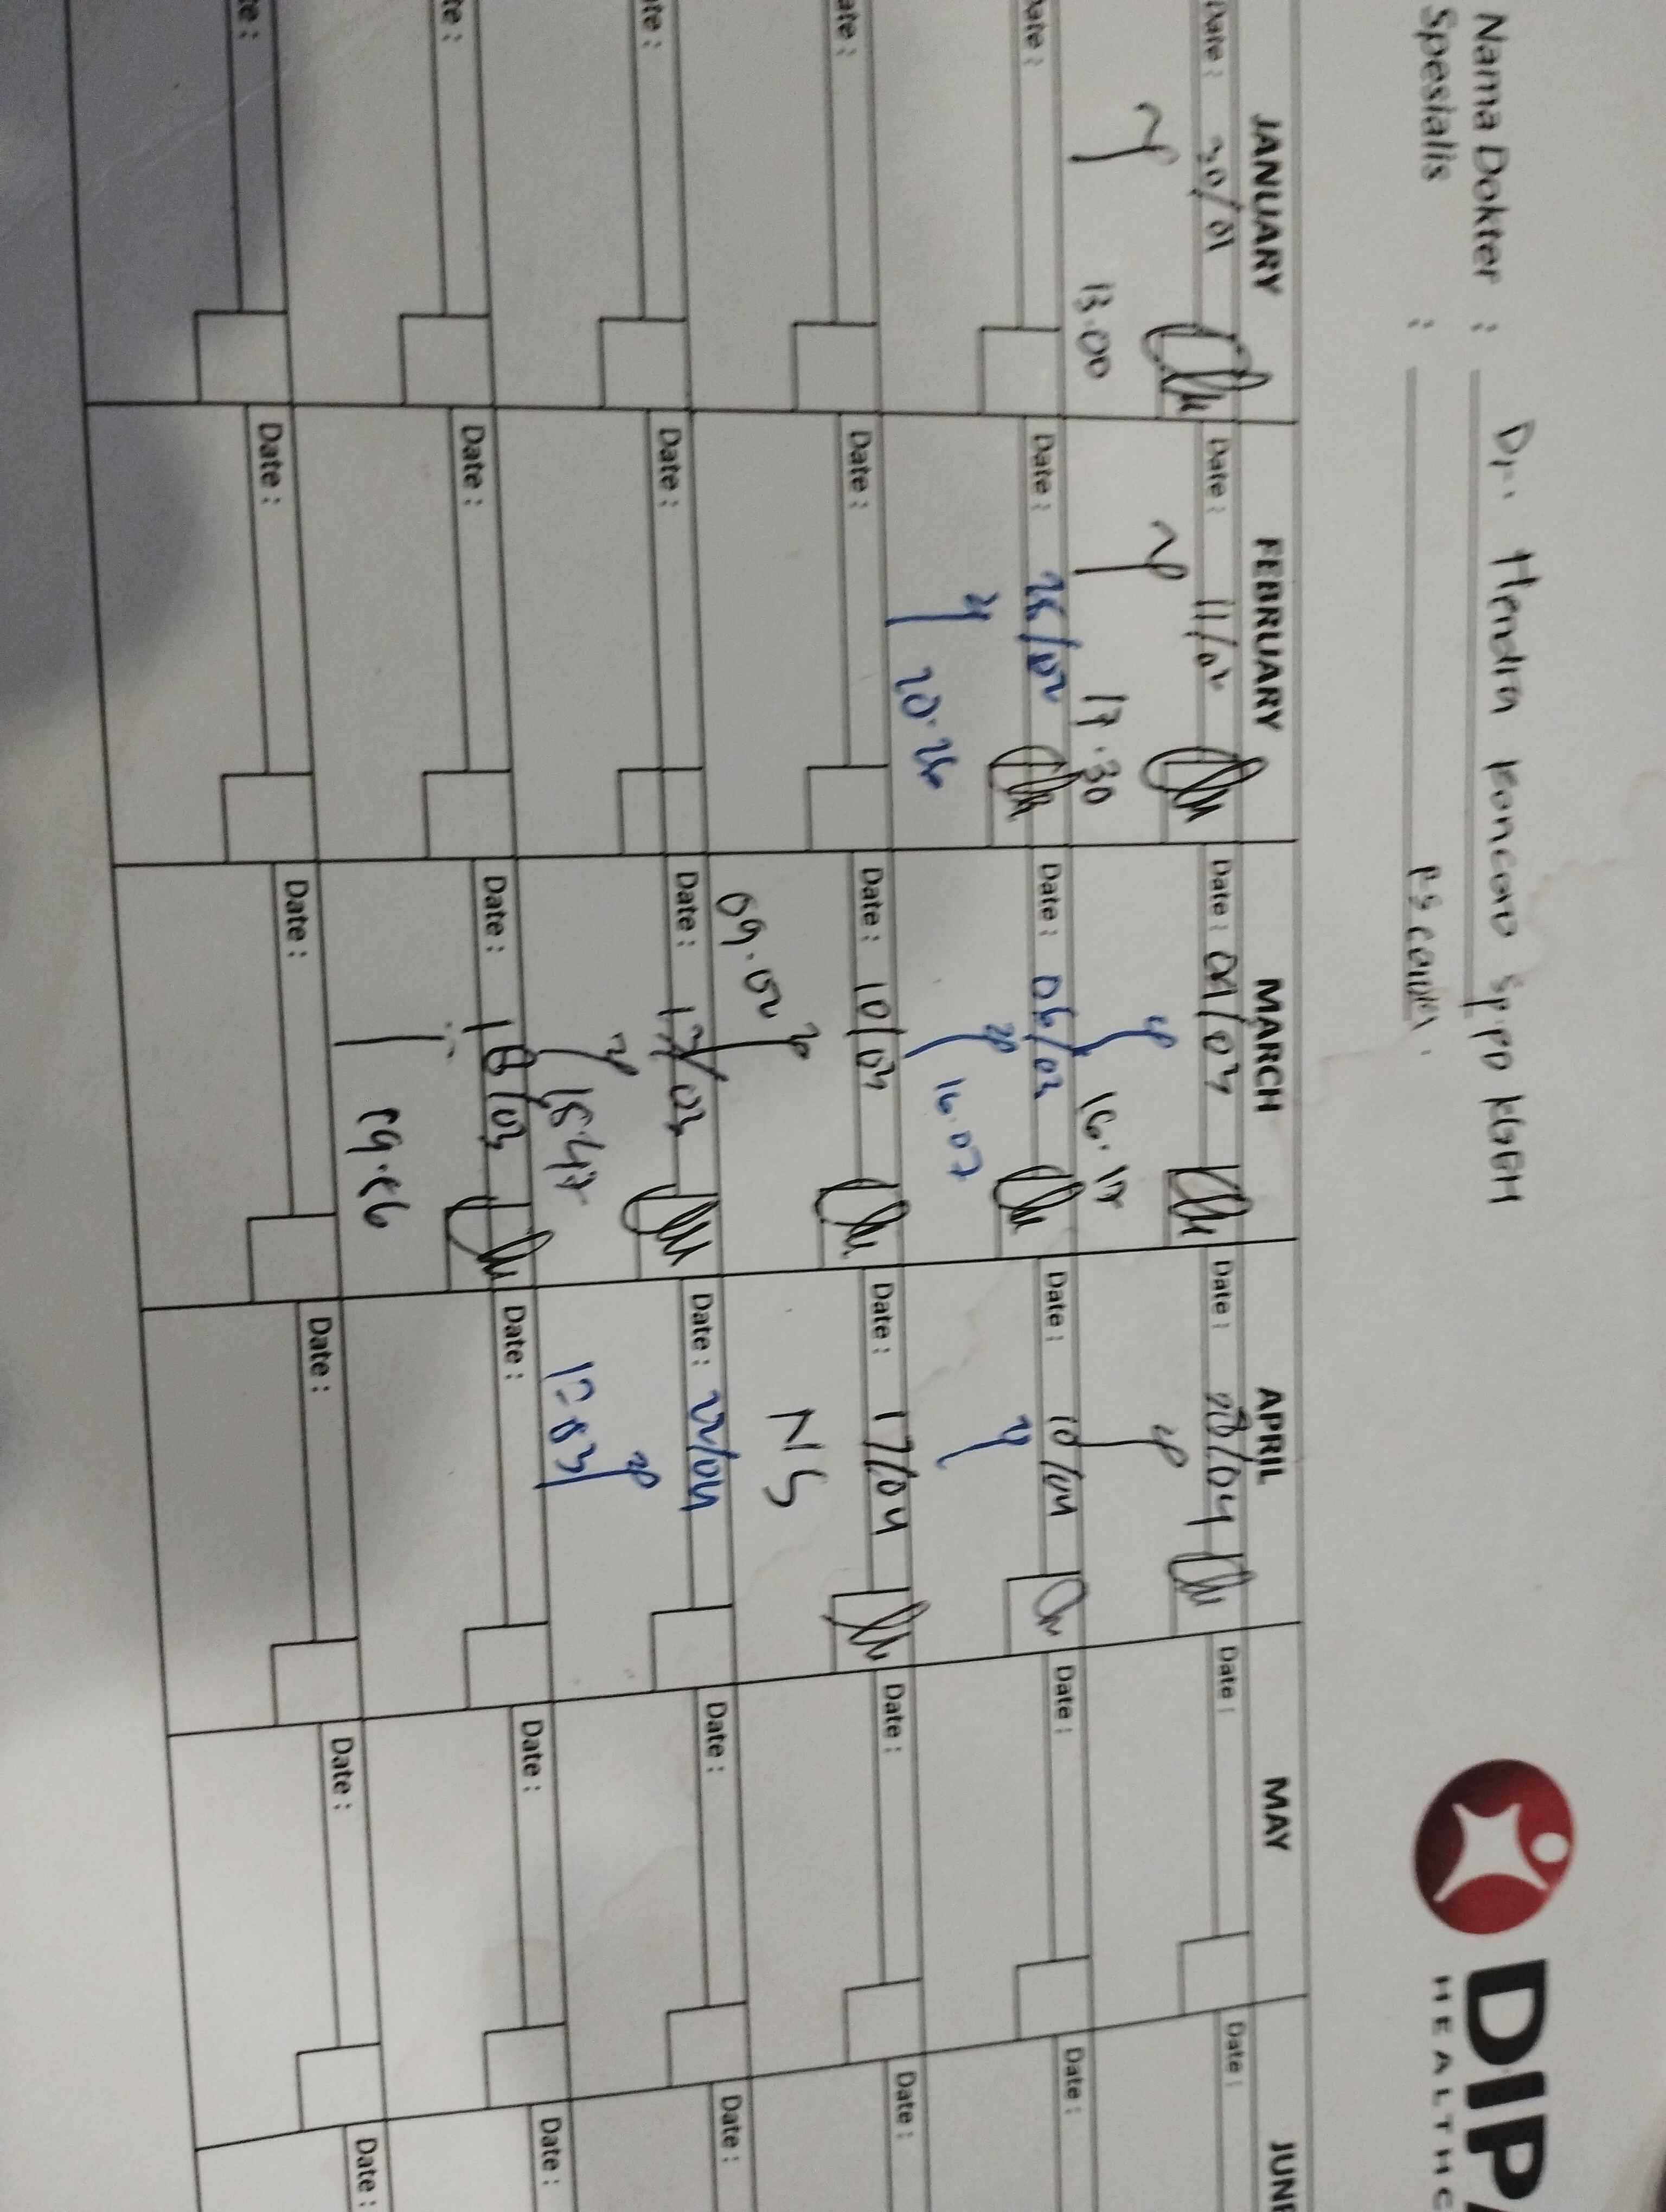 Nama Dokter : Dr. Hendra Koncoro SpPD KGEH
Spesialis :
DIPA
HEALTHC
JANUARY FEBRUARY MARCH APRIL MAY JUNE
Date : 30/01 Date : 11/02 Date : 04/03 Date : 08/04 Date : Date :
13.00 17.30 16.17
Date : Date : 25/02 Date : 06/03 Date : 10/04 Date : Date :
20.26 16.07
Date : Date : Date : 10/03 Date : 17/04 Date : Date :
09.02 NS
Date : Date : Date : 17/03 Date : 22/04 Date : Date :
18.47
Date : Date : Date : 18/03 Date : Date : Date :
Date : Date : Date : Date : Date : Date :